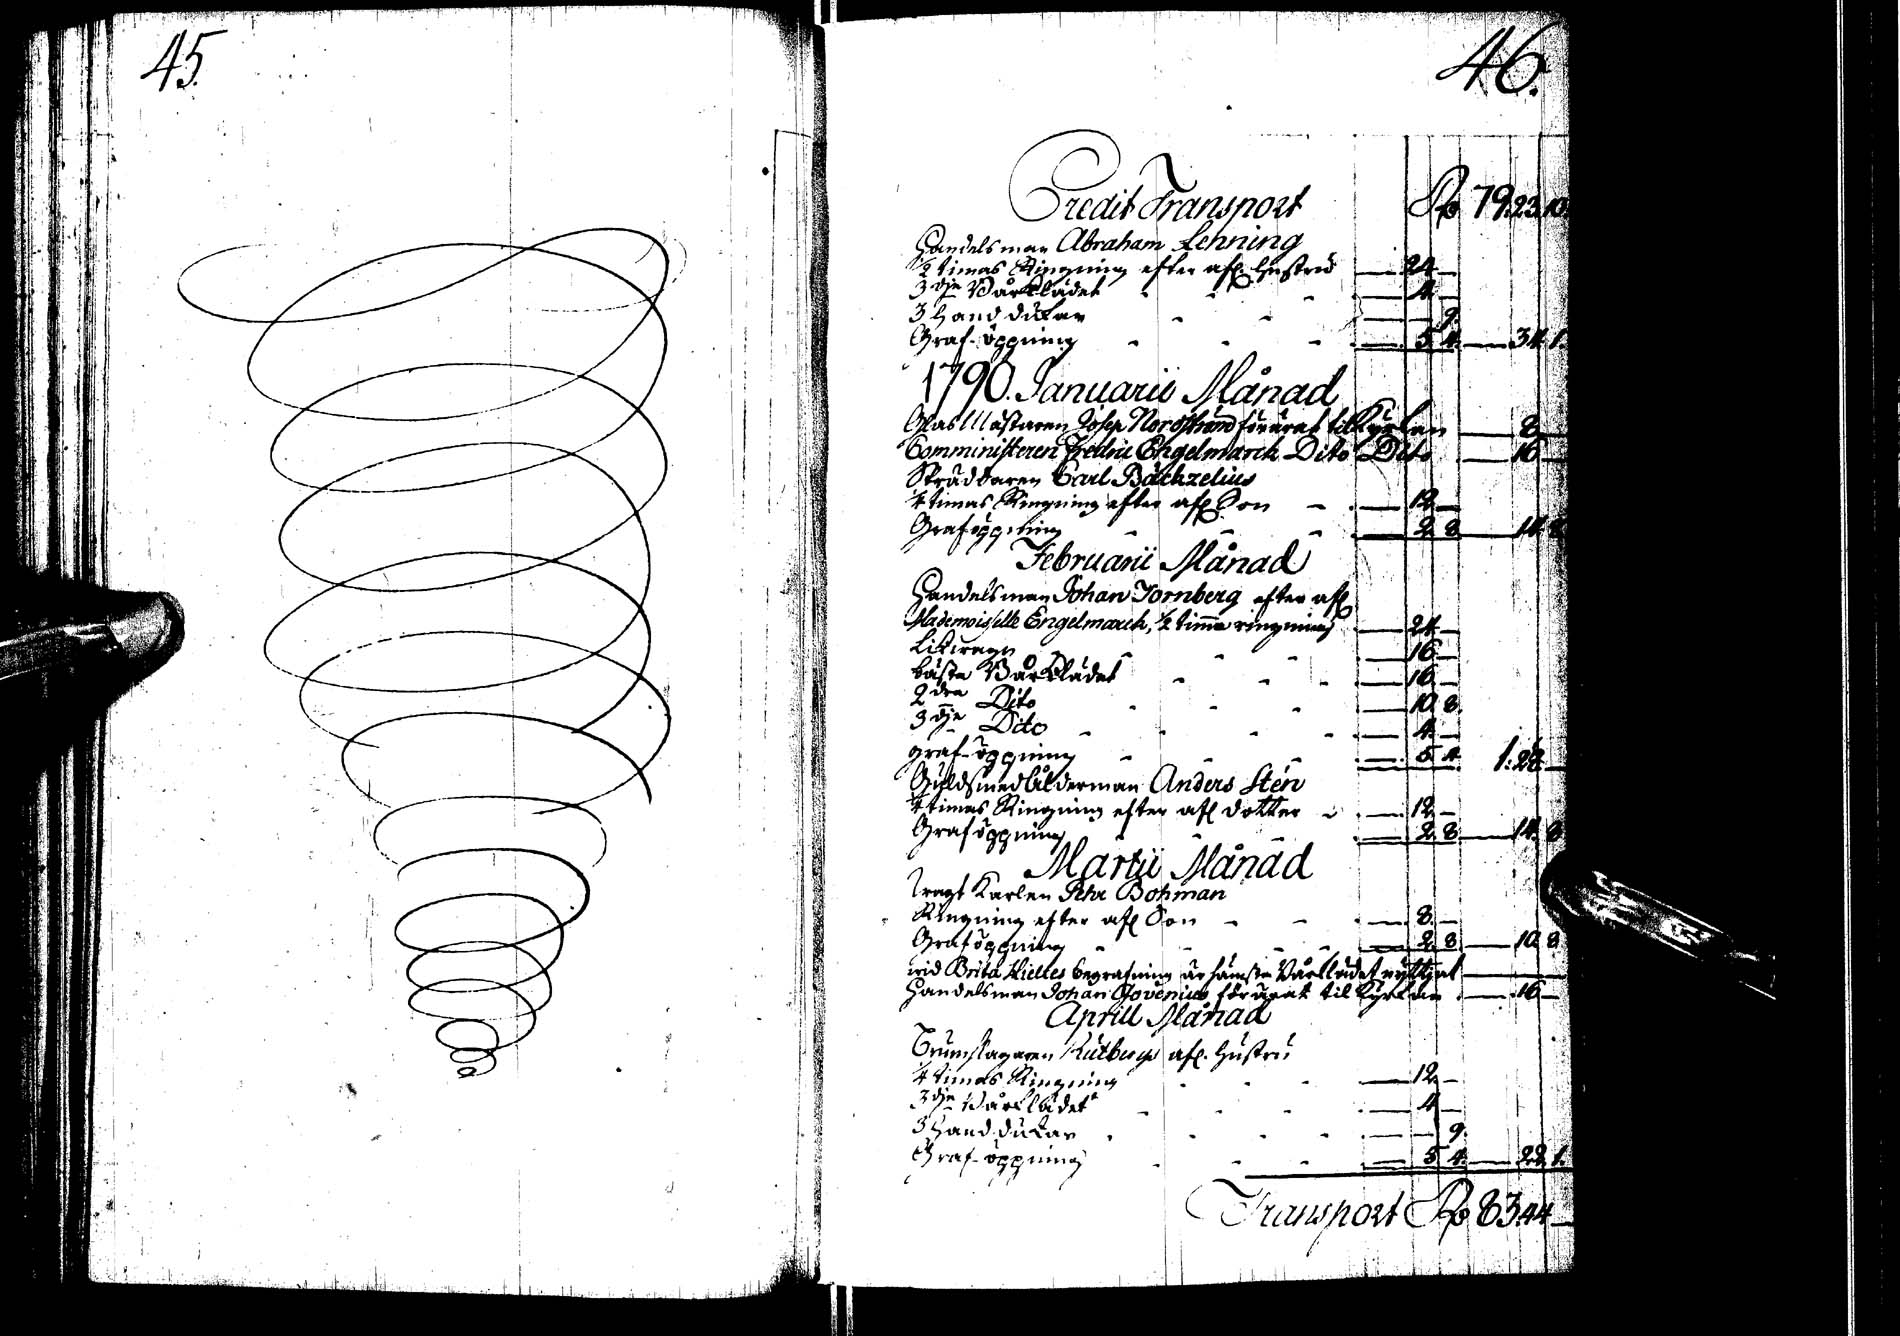 45.
46.
Credit Transport Rd 79.23.10.
Handelsman Abraham Lenning
1/2 timas Ringning efter afl. Hustru 24 —
3dje Bårklädet 4 —
3 Handdukar 9.
Graf-öppning 5 4. 34 1.
1790. Januarii Månad
Glas Mästaren Josep Nordstrand förärat til Kyrkan 8 —
Comministeren Fredric Engelmarck Dito Dito 16 —
Carl Bäckzelius
1/4 timas Ringning efter afl. Son 12 —
Graföppning 2 8. 14 8
Februarii Månad
Handelsman Johan Tornberg efter afl.
Mademoiselle Engelmarck, 1/2 timma ringning 24 —
16 —
bästa Bårklädet 16 —
2dra Dito 10 8.
3dje Dito 4 —
graf-öppning 5 4 1.28 —
Guldsmed Ålderman Anders Stén
1/4 timas Ringning efter afl. dotter 12 —
Graföppning 2 8 14 8
Martii Månad
Karlen Pehr Bohman
Ringning efter afl. Son 8 —
Graföppning 2 8 10 8
wid Brita begrafning är sämsta Bårklädet nyttjat
Handelsman Johan förärat til Kyrkan 16 —
Aprill Månad
afl. Hustru
1/4 timas Ringning 12 —
3dje Bårklädet 4 —
3 Handdukar 9.
Graf-öppning 5 4. 22 1.
Transport Rd 83.44 —